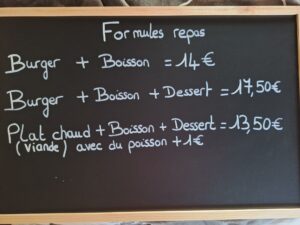 Formules repas
Burger + Boisson = 14€
Burger + Boisson + Dessert = 17,50€
Plat chaud + Boisson + Dessert = 13,50€
(viande) avec du poisson + 1€